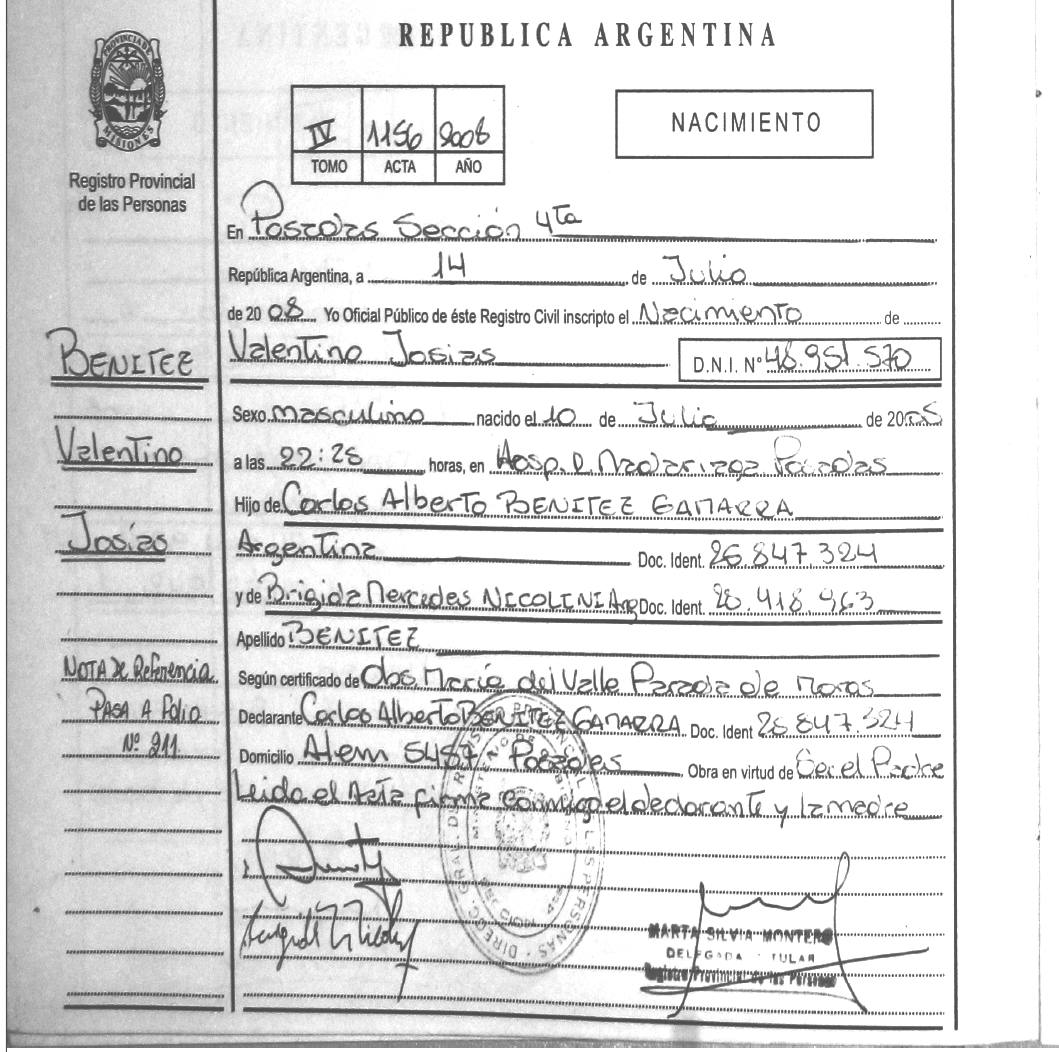 REPUBLICA ARGENTINA
PROVINCIA DE MISIONES
Registro Provincial
de las Personas
IV 1156 2008
TOMO ACTA AÑO
NACIMIENTO
En Posadas Sección 4Ta
República Argentina, a 14 de Julio
de 20 08 Yo Oficial Público de éste Registro Civil inscripto el Nacimiento de
Valentino Josias D.N.I. Nº 48.951.570
Sexo masculino nacido el 10 de Julio de 2008
a las 22:28 horas, en Hosp. R. Madariaga Posadas
Hijo de Carlos Alberto BENITEZ GAMARRA
Argentina Doc. Ident. 26.847.324
y de Brigida Mercedes NICOLINI Arg Doc. Ident. 28.418.963
Apellido BENITEZ
Según certificado de Obs. María del Valle Parada de Moras
Declarante Carlos Alberto BENITEZ GAMARRA Doc. Ident 26.847.324
Domicilio Alem 5457 Posadas Obra en virtud de Ser el Padre
Leida el Acta firma conmigo el declarante y la madre
BENITEZ
Valentino
Josias
NOTA DE Referencia
PASA A Folio
Nº 211.
MARTA SILVIA MONTERO
DELEGADA TITULAR
Registro Provincial de las Personas